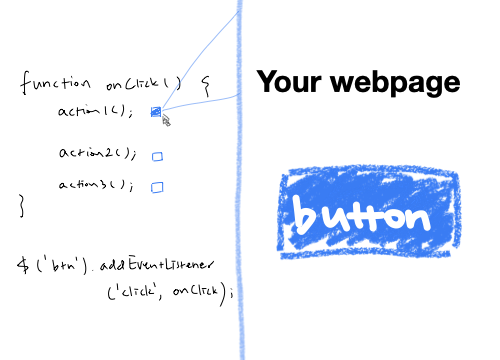 function onClick() {
action1();
action2();
action3();
}
$('btn').addEventListener
('click', onClick);
Your webpage
button